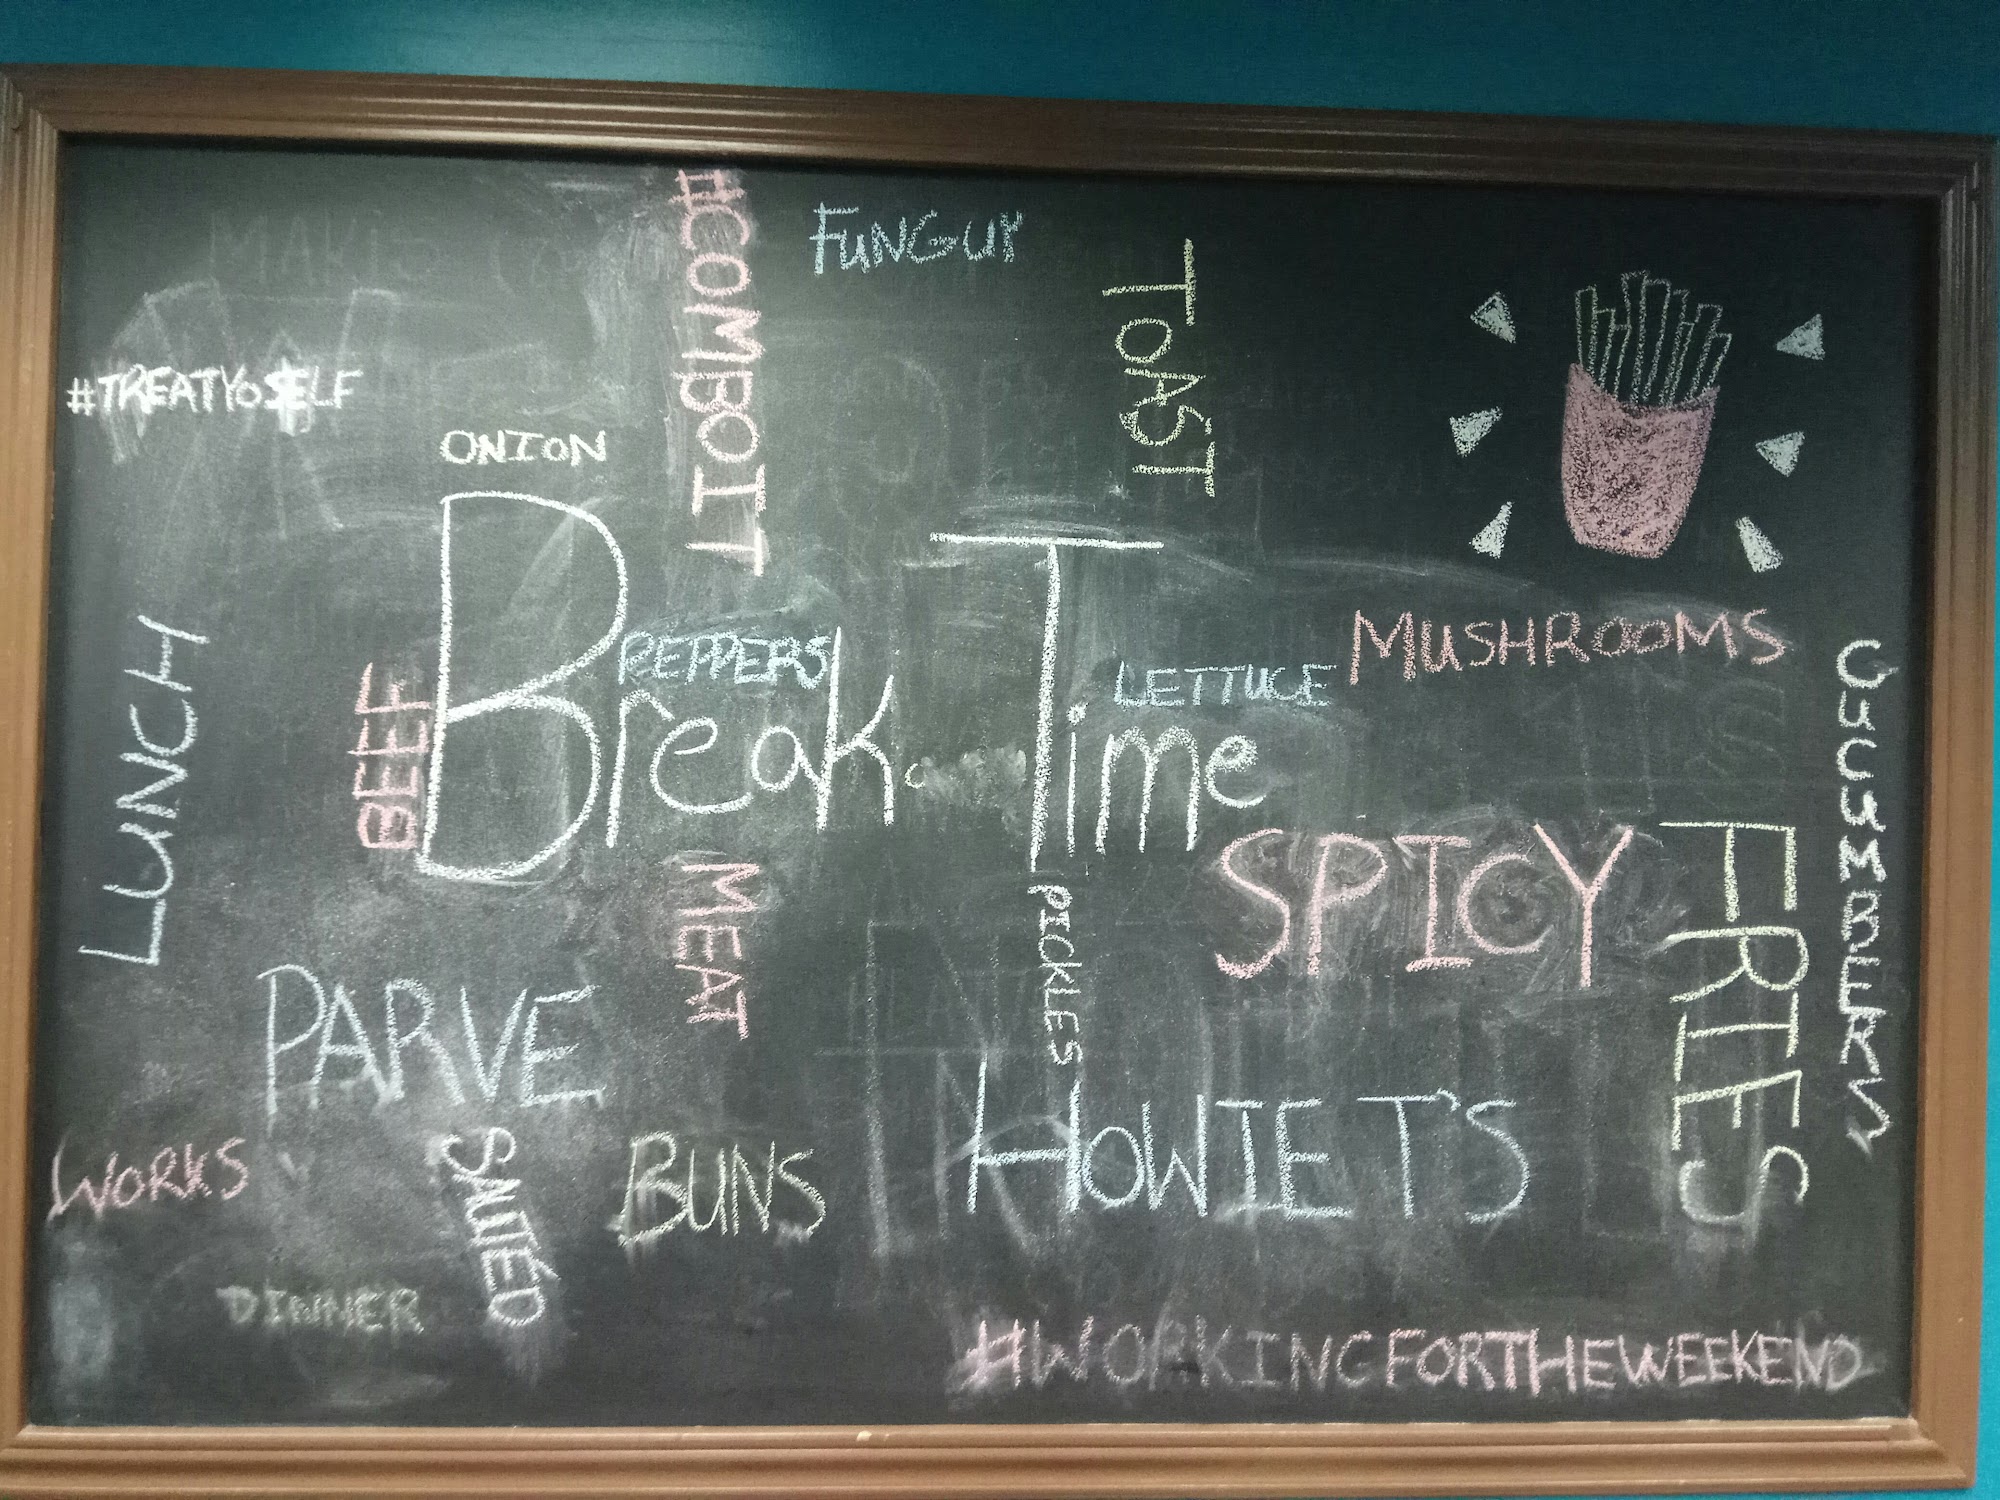 #COMBOIT
FUNGUY
TOAST
#TREATYOSELF
ONION
Break Time
PEPPERS
LETTUCE
MUSHROOMS
CUCUMBERS
LUNCH
BEEF
MEAT
PICKLES
SPICY
FRIES
PARVE
HOWIE T'S
WORKS
SAUTÉD
BUNS
DINNER
#WORKINGFORTHEWEEKEND